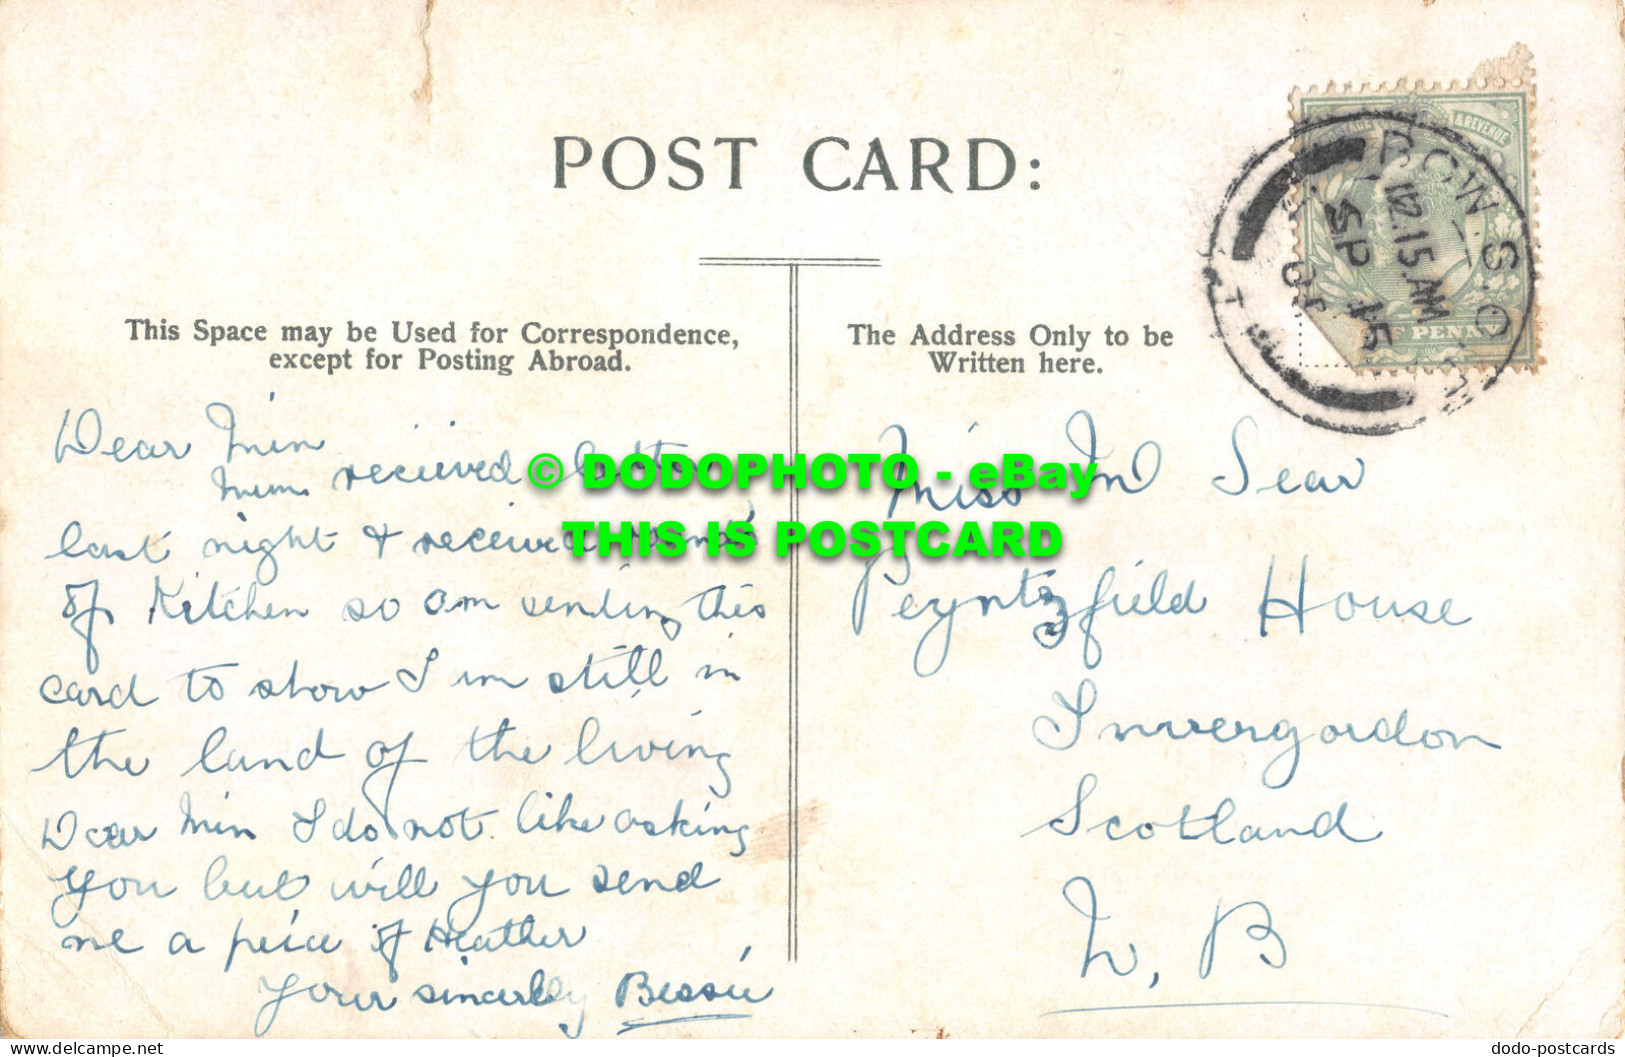 POST CARD:
This Space may be Used for Correspondence,
except for Posting Abroad.
The Address Only to be
Written here.
& REVENUE
BOW S.O.
12.15 AM
SP 15
F PENNY
Dear Min
Mum recieved letter
last night & received
of Kitchen so am sending this
card to show I am still in
the land of the living
Dear Min I do not like asking
you but will you send
me a peice of Heather
Your sincerely Bessie
Miss M Sear
Peyntzfield House
Invergordon
Scotland
N. B
© DODOPHOTO - eBay
THIS IS POSTCARD
www.delcampe.net
dodo-postcards